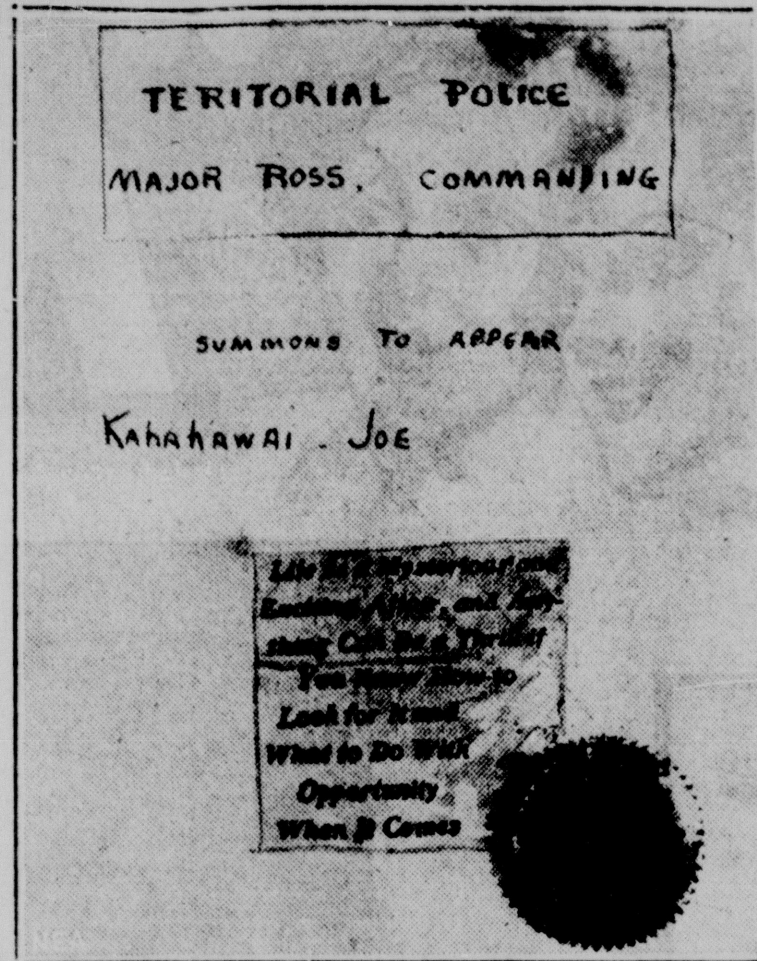 TERITORIAL POLICE
MAJOR ROSS, COMMANDING
SUMMONS TO APPEAR
KAHAHAWAI - JOE
Life Is a Mysterious and
Exciting Affair, and Any-
thing Can Be a Thrill if
You Know How to
Look for It and
What to Do With
Opportunity
When It Comes